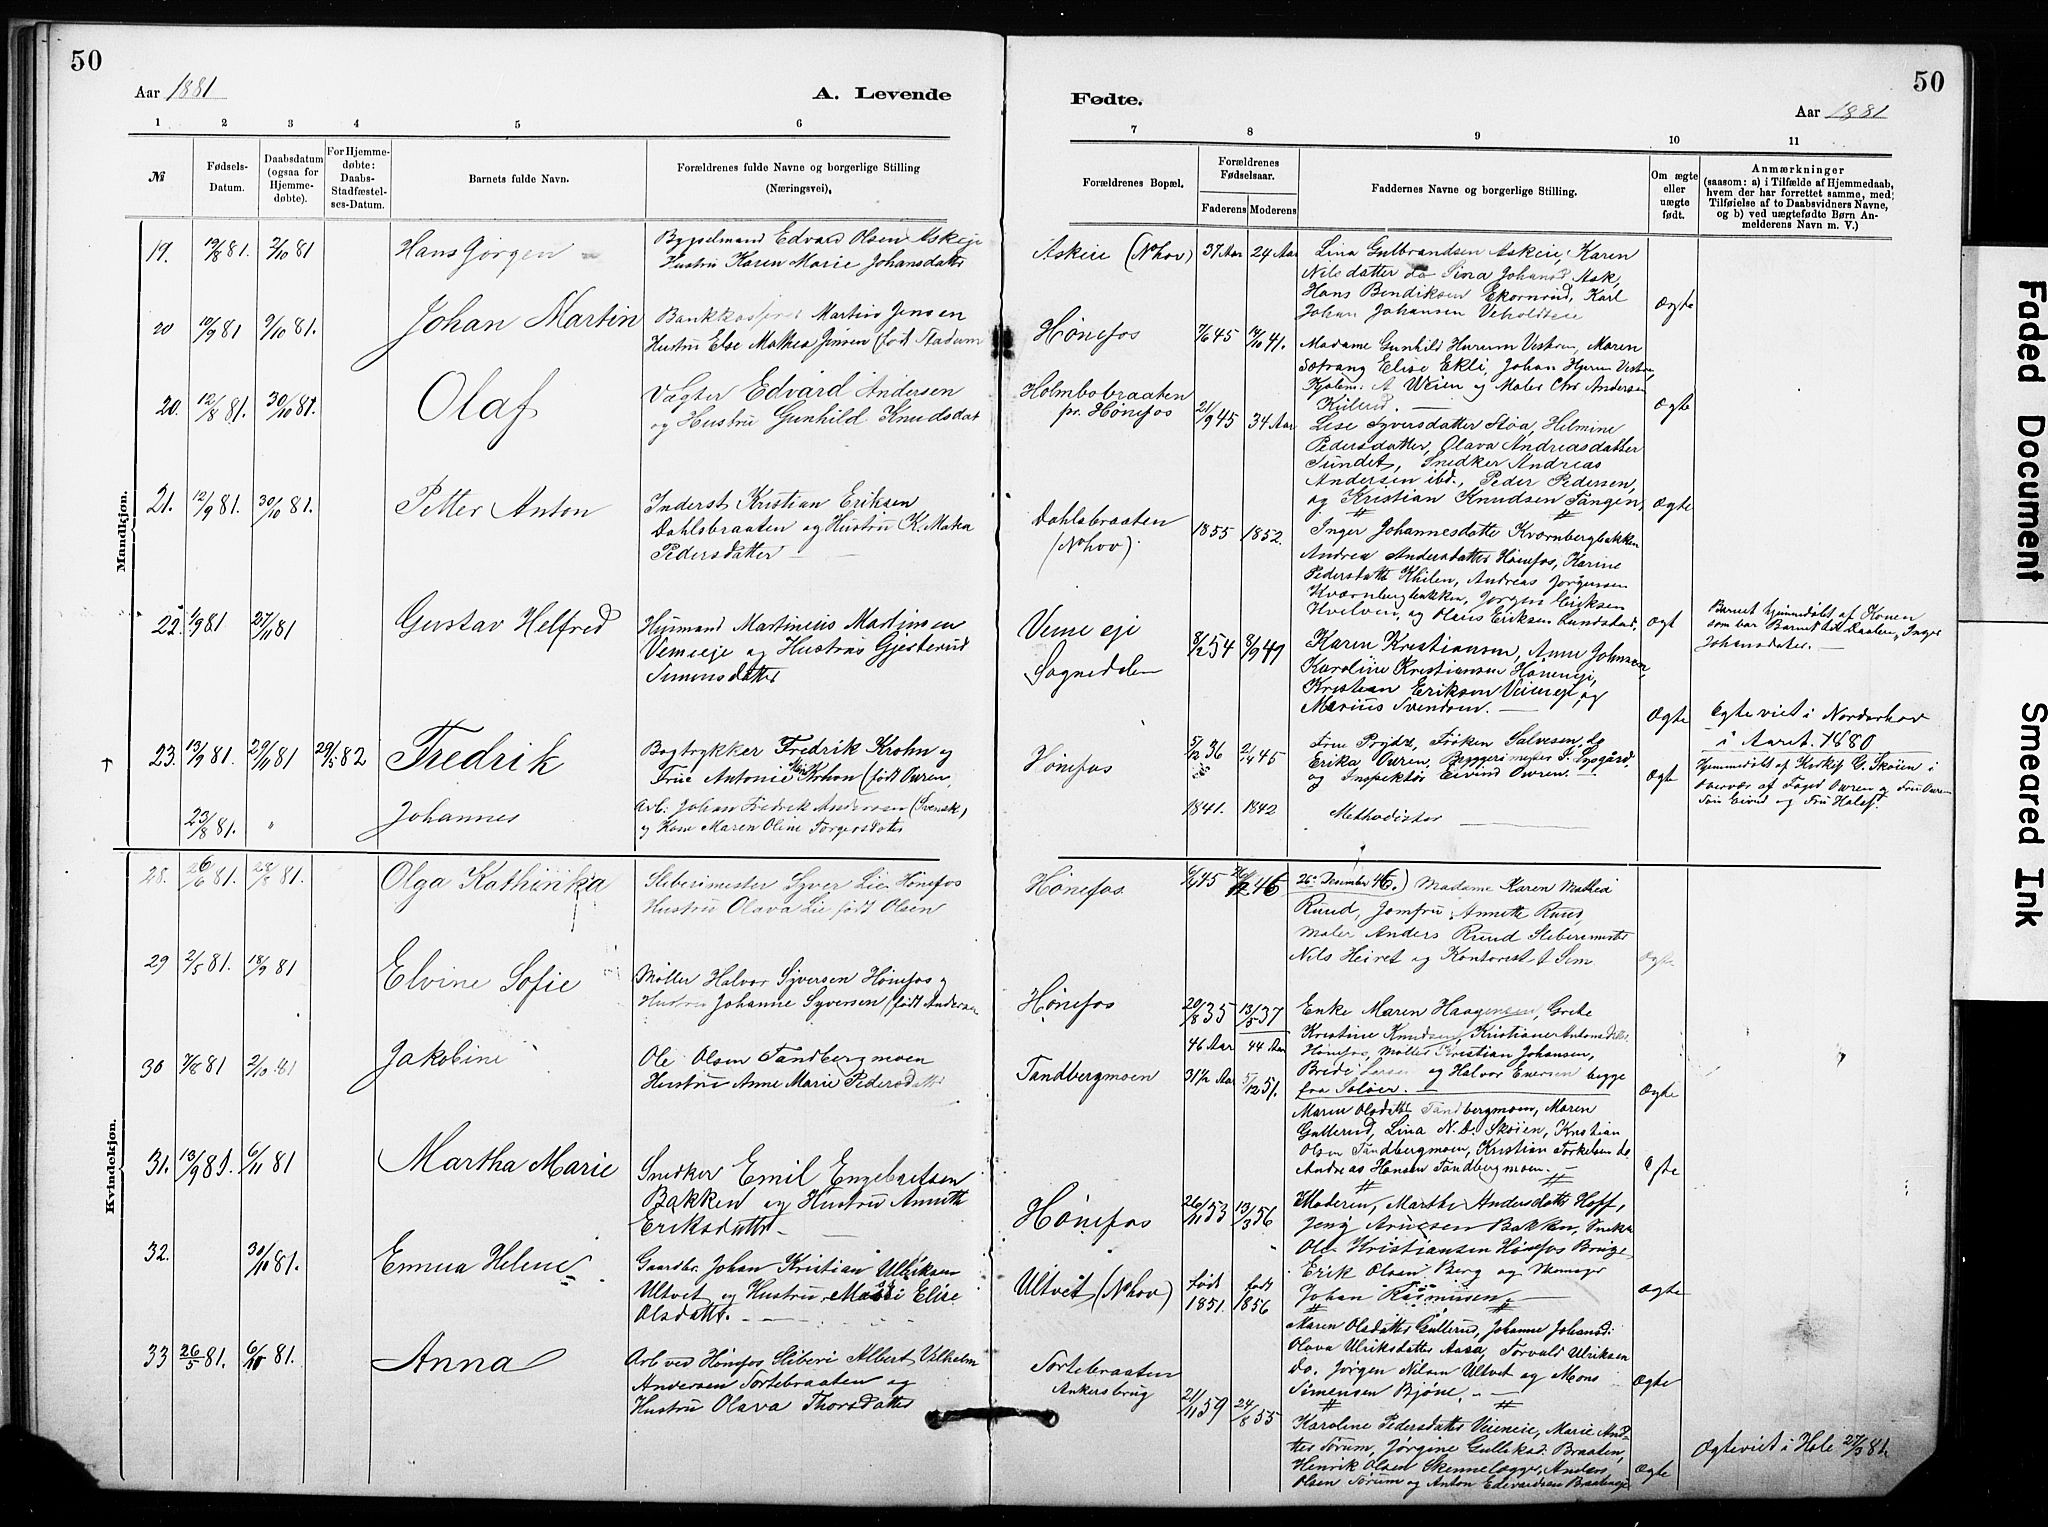 50
50
Aar 1881
A. Levende
Fødte.
Aar 1881
1 2 3 4 5 6
7 8 9 10 11
№
Fødsels-
Datum.
Daabsdatum
(ogsaa for
Hjemme-
døbte).
For Hjemme-
døbte:
Daabs-
Stadfæstel-
ses-Datum.
Barnets fulde Navn.
Forældrenes fulde Navne og borgerlige Stilling
(Næringsvei).
Forældrenes Bopæl.
Forældrenes
Fødselsaar.
Faderens Moderens
Faddernes Navne og borgerlige Stilling.
Om ægte
eller
uægte
født.
Anmærkninger
(saasom: a) i Tilfælde af Hjemmedaab,
hvem der har forrettet samme, med
Tilføielse af to Daabsvidners Navne,
og b) ved uægtefødte Børn An-
melderens Navn m. V.)
Mandkjøn.
19. 19/8 81. 2/10 81 Hans Jørgen
Bygselmand Edvard Olsen Askeje
Hustru Karen Marie Johansdatter
Askeie (Nhov) 37 Aar 24 Aar
Lina Gulbrandsen Askeie, Karen
Nilsdatter do Sina Johansd. Ask,
Hans Bendiksen Ekornrud, Karl
Johan Johansen Veholdteie
Ægte
20 19/9 81 9/10 81. Johan Martin
Bankkasserer Martin Jensen
Hustru Else Mathea Jensen (født Stadum
Hønefos 7/6 45 14/10 41.
Madame Gunhild Hurum Vestren, Maren
Sætrang Elise Ekli, Johan Hjerm Vestren,
Kjøbm: A Weien og Maler Chr Andersen
Kulerud.
Ægte
20. 12/8 81. 30/10 81. Olaf
Vagter Edvard Andersen
og Hustru Gunhild Knudsdat
Holmbobraaten
pr. Hønefos 21/9 45 34 Aar
Lise Syversdatter Støa, Helmine
Pedersdatter, Olava Andreasdatter
Tundet, Snedker Andreas
Andersen ibd., Peder Pedersen,
og Kristian Knudsen Tangen,
Ægte
21. 12/9 81. 30/10 81. Petter Anton
Inderst Kristian Eriksen
Dahlsbraaten og Hustru K. Matea
Pedersdatter
Dahlsbraaten
(Nhov). 1855 1852.
Inger Johannesdatter Kværnbergbakken
Andrea Andersdatter Hønefos, Karine
Pedersdatter Hvilen, Andreas Jørgensen
Kværnbergbakken, Jørgen Eriksen
Hvelven, og Olaus Eriksen Lundstad.
Ægt
22. 1/9 81 27/11 81 Gustav Helfred
Husmand Martinius Martinsen
Vemeeje og Hustru Gjesterud
Simonsdatter
Veme eje
Sognedalen 8/12 54 8/9 49
Karen Kristiansen, Anne Johnsen,
Karoline Kristiansen Høneneje,
Kristian Eriksen Veieneje, og
Marius Svendsen.
Ægte
Barnet hjemmedøbt af Konen
som bar Barnet til Daaben, Inger
Johansdatter.
23. 13/9 81. 20/11 81 29/5 82 Fredrik
Bogtrykker Fredrik Krohn og
Frue Antonie Krohn (født Owren,
Hønefos 5/12 36 2/4 45
Frue Prydz, Frøken Salvesen, og
Erika Owren, Byggeri mester S. Lysgård,
og Inspektør Eivind Owren.
Ægte
Ægteviet i Norderhov
i Aaret 1880
Hjemmedøbt af Hørkip C. Skøien i
overvær af Foged Owren og Fru Owren
Fru Eivid og Fru Halef.
23/8 81. " Johannes
Arb. Johan Fredrik Andersen (Svensk)
og Kone Maren Oline Torgersdatter
1841. 1842 Methodister
Kvindekjøn.
28. 26/6 81. 28/8 81. Olga Kathinka
Sliberimester Syver Lie Hønefos
Hustru Olava Lie født Olsen
Hønefos 6/4 45 26/12 46
26de Desember 46.) Madame Karen Mathea
Ruud, Jomfru Annette Ruud
Maler Anders Ruud Slibermester
Nils Heiret og Kontorist A Sem
Ægte
29 2/5 81. 18/9 81 Elvine Sofie
Møller Halvor Syversen Hønefos og
Hustru Johanne Syversen (født Andersen
Hønefos 20/8 35 13/5 37
46 Aar 44 Aar
Enke Maren Haagensen, Grete
Kristine Knudsen, Kristiane Antonsdatter
Hønefos, Møller Kristian Johansen,
Brede Larsen og Halvor Enersen begge
fra Soløer.
Ægte
30 7/8 81 2/10 81 Jakobine
Ole Olsen Tandbergmoen
Hustru Anne Marie Pedersdatter
Tandbergmoen 31½ Aar 5/12 51.
Maren Olsdatter Tandbergmoen, Maren
Gullerud, Lina N. D. Skøien, Kristian
Olsen Tandbergmoen, Kristian Torkelsen do.
Andreas Hansen Tandbergmoen.
Ægte
31. 13/9 81. 6/11 81 Martha Marie
Snedker Emil Engebretsen
Bakken og Hustru Annette
Eriksdatter
Hønefos 26/11 53 13/3 56
Moderen, Marthe Andersdatter Hoff,
Jenny Arnesen Bakken, Snekker
Ole Kristiansen Hønefos Brug,
Erik Olsen Berg og Skomager
Johan Rasmusen
Ægte
32. 30/10 81. Emma Helene
Gaardbr. Johan Kristian Ulriksen
Ultvet og Hustru Mari Elise
Olsdatter.
Ultvet (Nhov) født 1851. født 1856
Maren Olsdatter Gullerud, Johanne Johansd:
Olava Ulriksdatter Aasa, Torvald Ulriksen
Do. Jørgen Nilsen Ultvet og Mons
Simensen Bjøne.
Ægte
33 26/5 81. 6/11 81. Anna
Arb ved Hønefos Sliberi Albert Vilhelm
Andersen Tortebraaten og
Hustru Olava Thorsdatter
Tortebraaten
Ankersbrug 21/11 59 24/8 55
Karoline Pedersdatter Veieneie, Marie And-
ttes Sørum, Jørgine Gulliksd: Braaten,
Henrik Olsen Skennelægger, Anders
Olsen Sørum og Anton Edevardsen Braateneje
Ægte
Ægteviet i Hole 27/3 81.
Faded Document
Smeared Ink